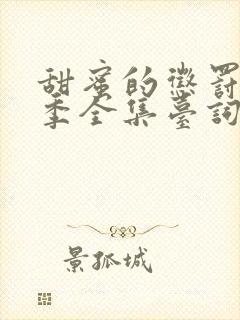 甜蜜的懲罰
季全集臺詞
景孤城